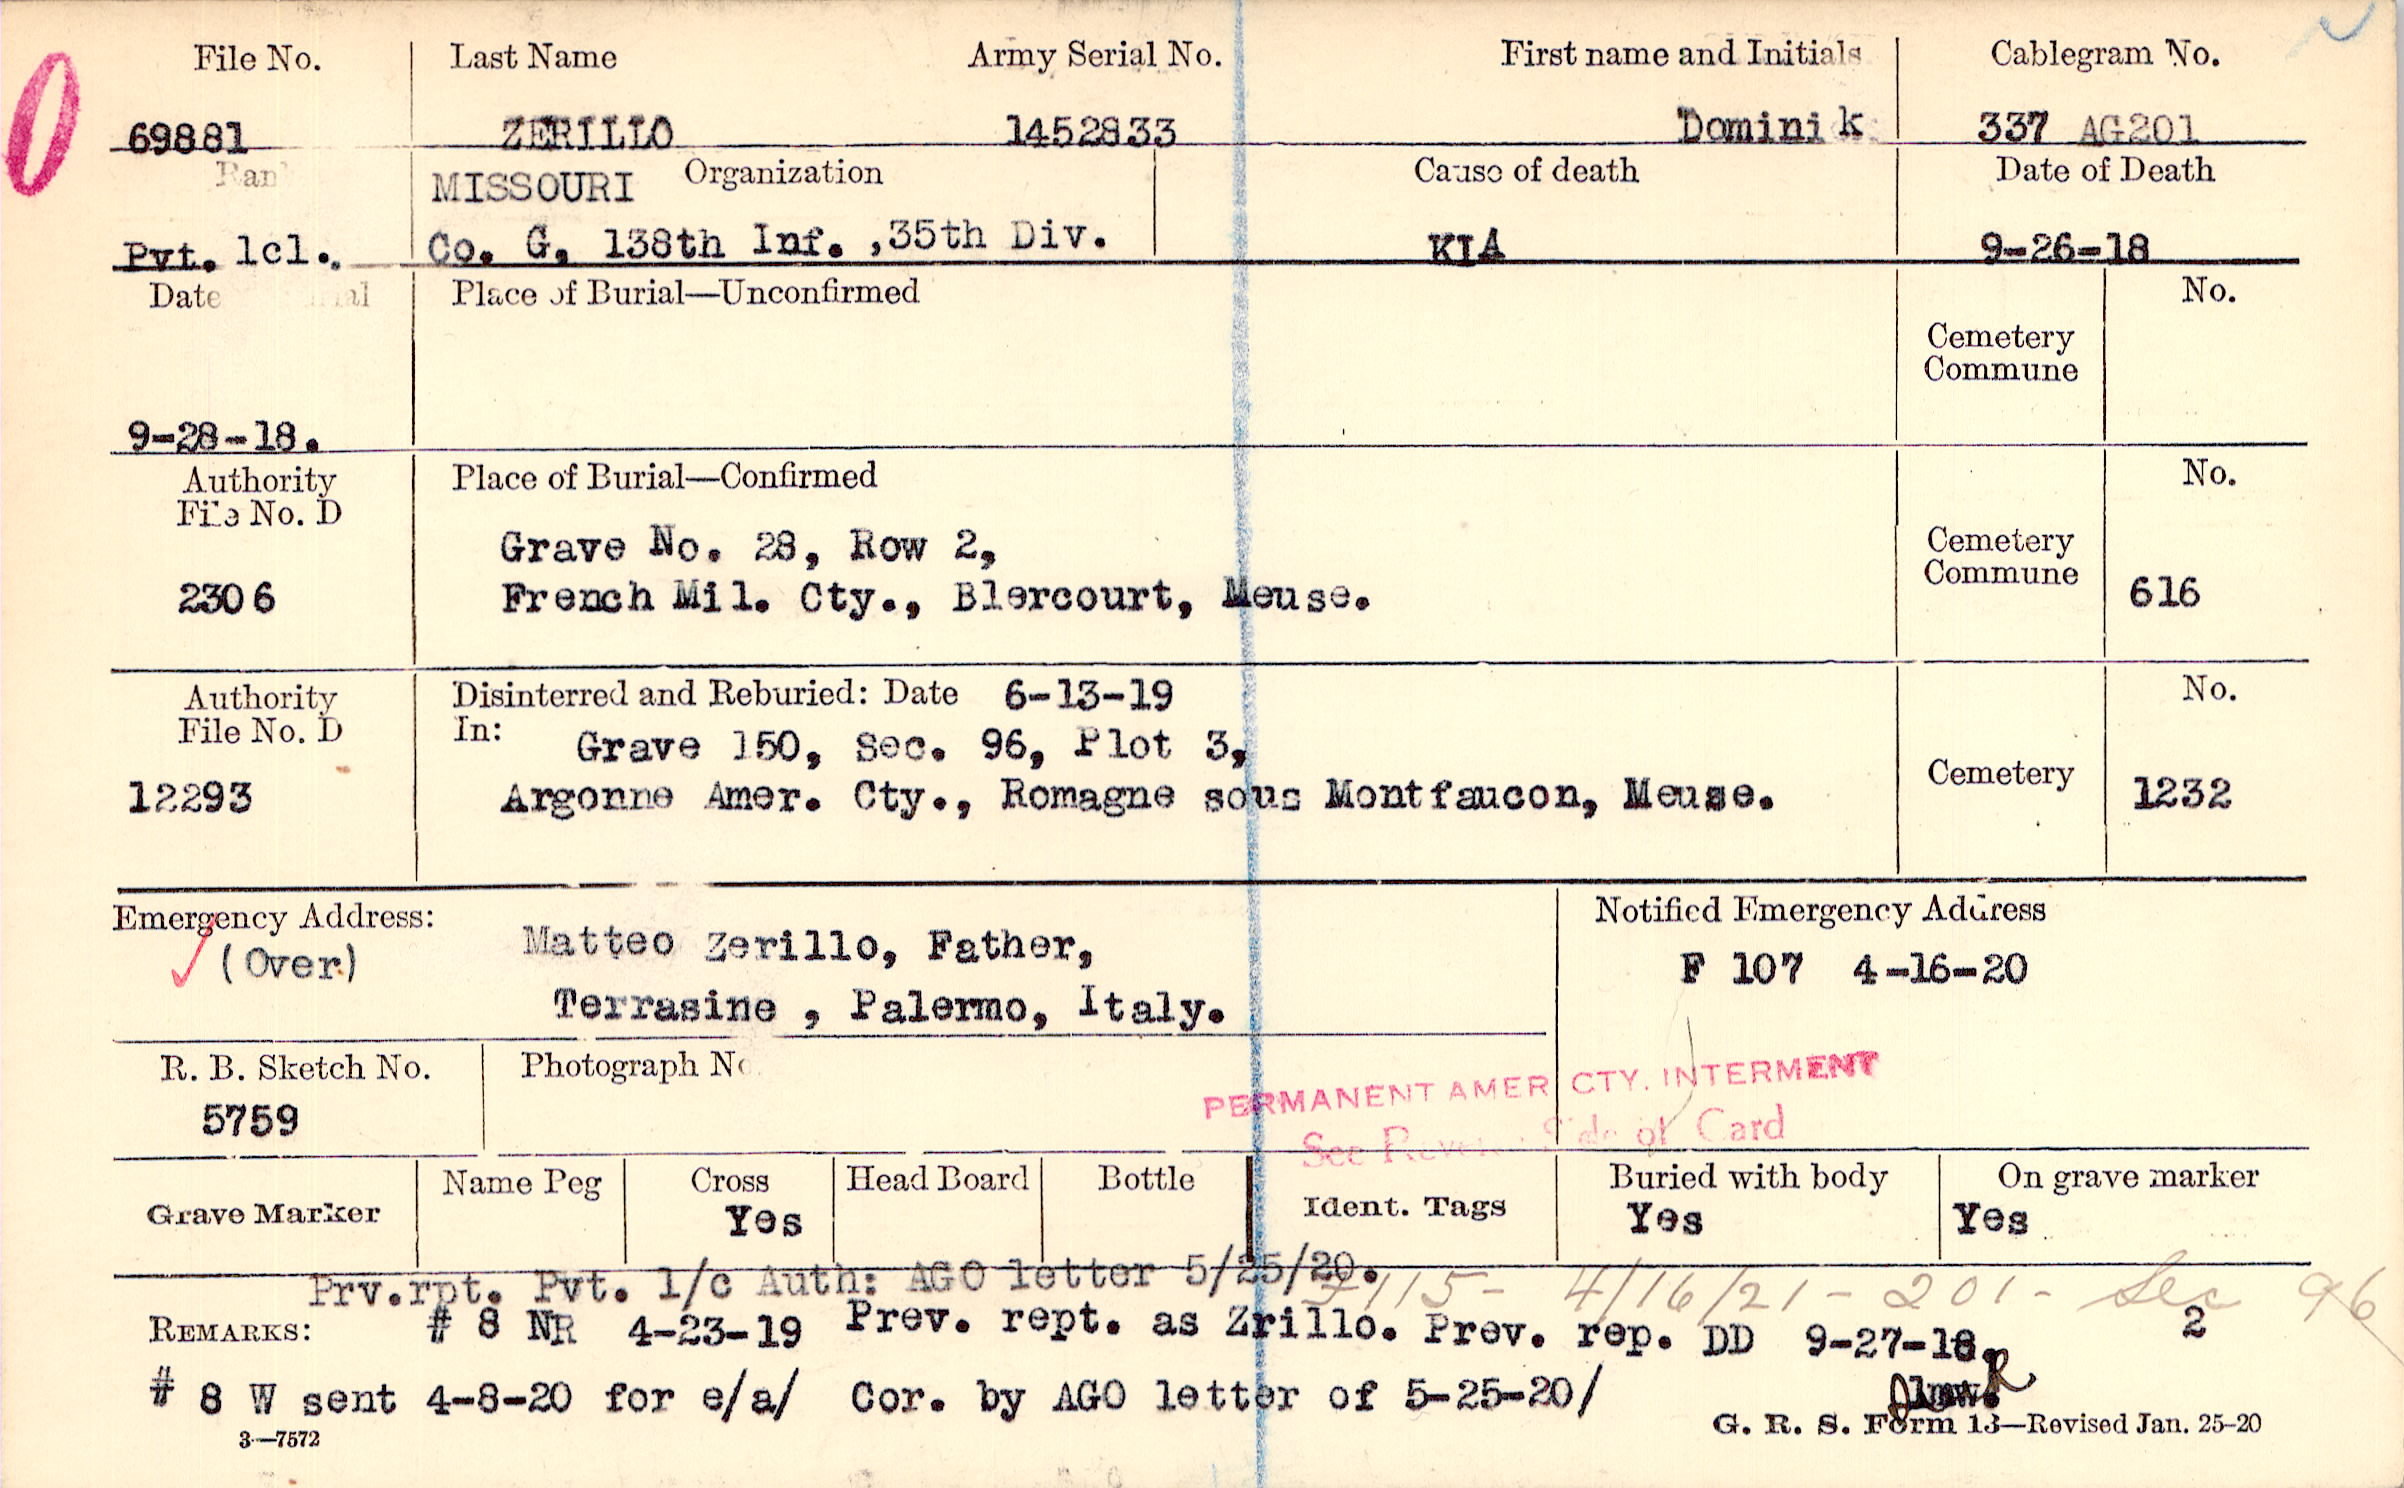 File No. Last Name Army Serial No. First name and Initials Cablegram No.
69881 ZERILLO 1452833 Dominik 337 AG201
Organization Cause of death Date of Death
MISSOURI
Pvt. 1cl. Co. G. 138th Inf. ,35th Div. KIA 9-26-18
Date Place of Burial—Unconfirmed No.
Cemetery
Commune
9-28-18.
Authority Place of Burial—Confirmed No.
File No. D
Grave No. 28, Row 2, Cemetery
Commune
2306 French Mil. Cty., Blercourt, Meuse. 616
Authority Disinterred and Reburied: Date 6-13-19 No.
File No. D In: Grave 150, Sec. 96, Plot 3,
Cemetery
12293 Argonne Amer. Cty., Romagne sous Montfaucon, Meuse. 1232
Emergency Address: Notified Emergency Address
(Over) Matteo Zerillo, Father, F 107 4-16-20
Terrasine , Palermo, Italy.
R. B. Sketch No. Photograph No.
5759
PERMANENT AMER CTY. INTERMENT
See Reverse Side of Card
Grave Marker Name Peg Cross Head Board Bottle Ident. Tags Buried with body On grave marker
Yes Yes Yes
Prv.rpt. Pvt. 1/c Auth: AGO letter 5/25/20.
4/16/21 - 201 - Sec 96
REMARKS: # 8 NR 4-23-19 Prev. rept. as Zrillo. Prev. rep. DD 9-27-18. 2
# 8 W sent 4-8-20 for e/a/ Cor. by AGO letter of 5-25-20/
3—7572 G. R. S. Form 13—Revised Jan. 25-20